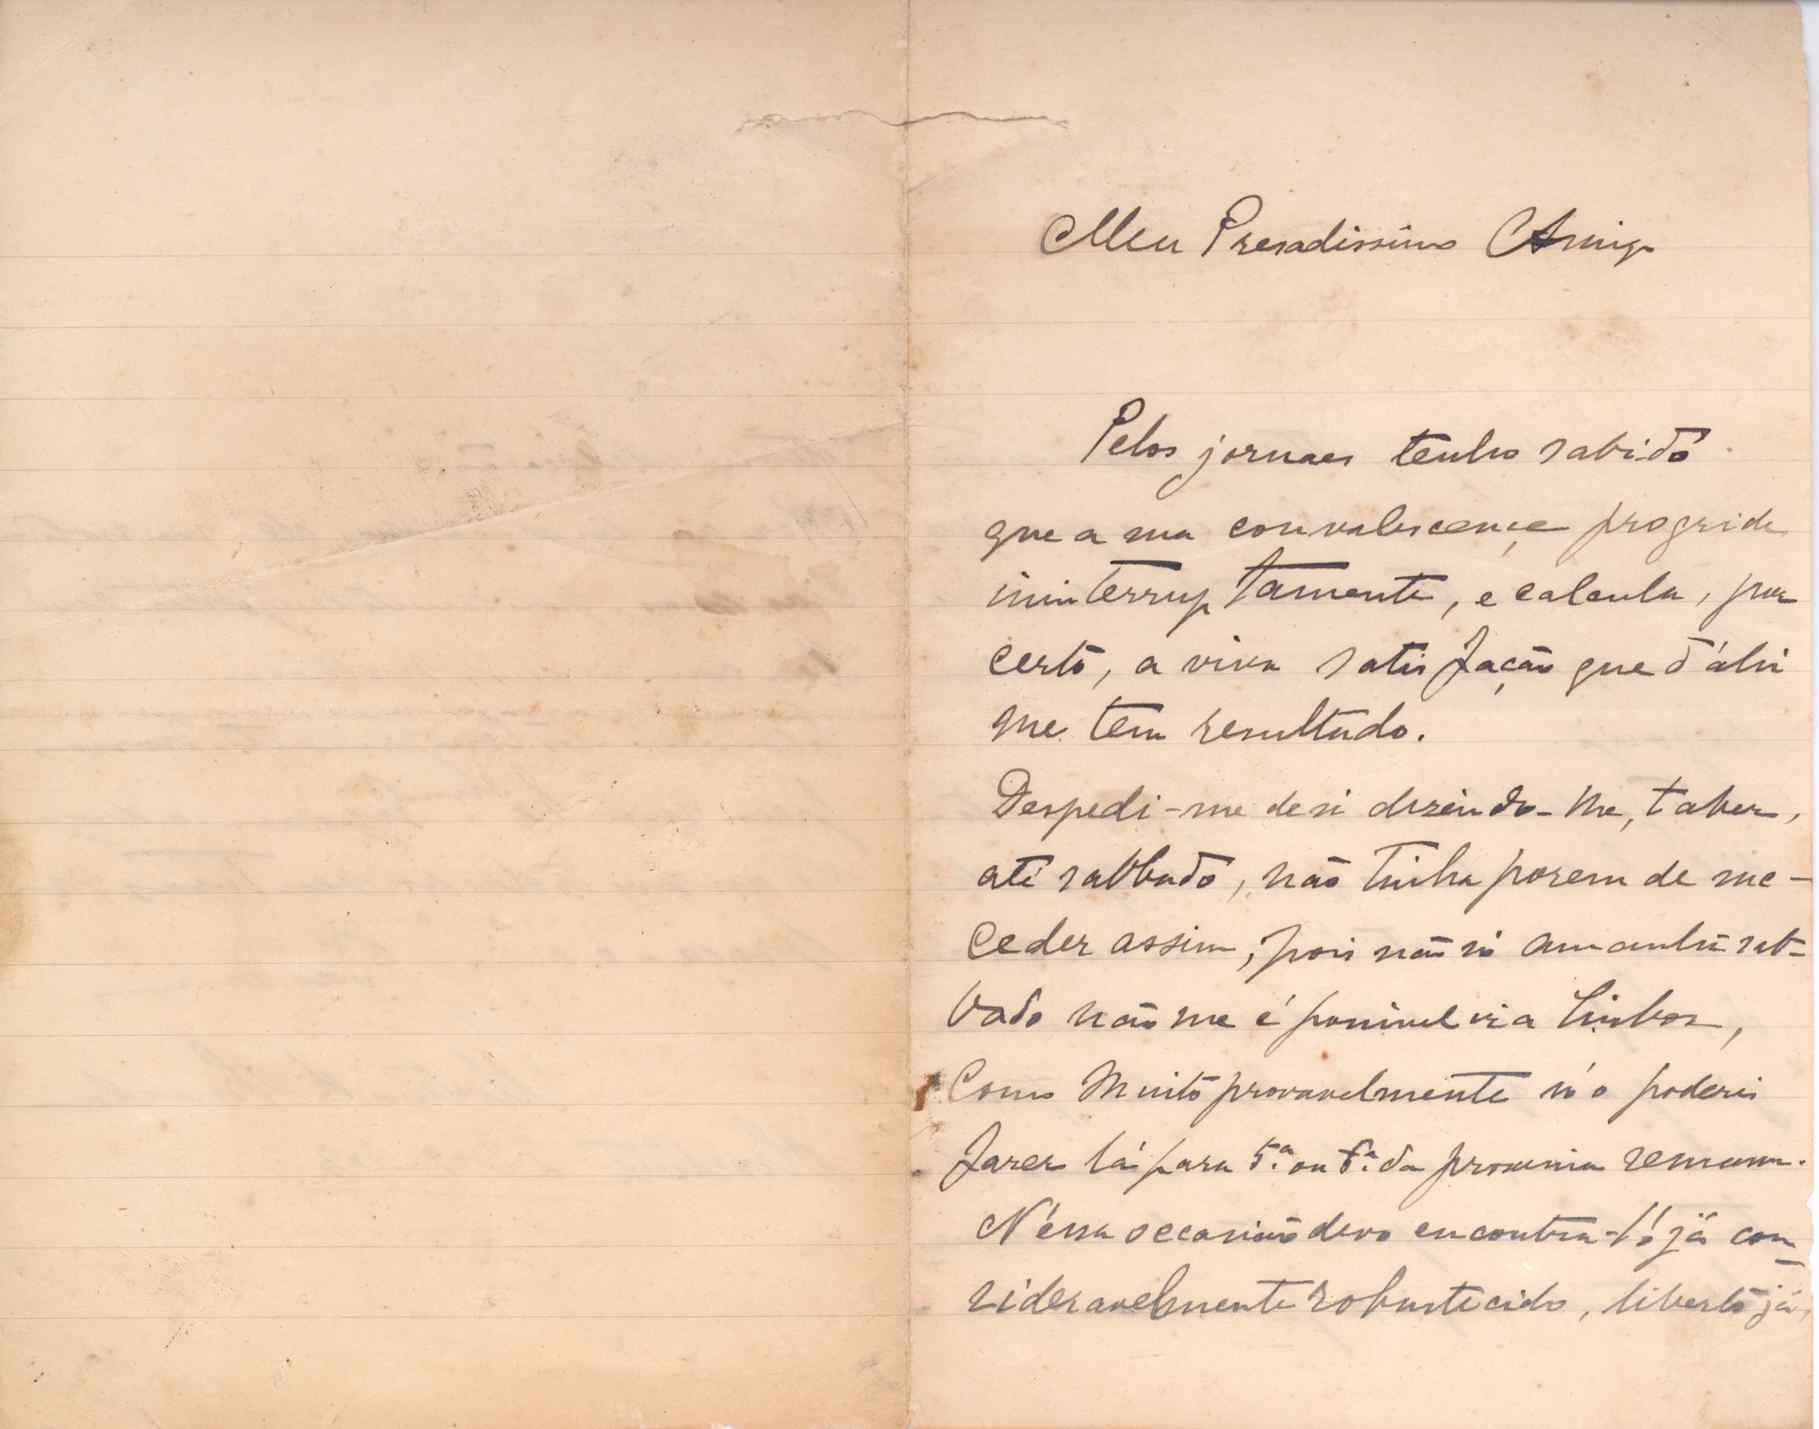 Meu Presadissimo Amigo
Pelos jornaes tenho sabido
que a sua convalescença progride
ininterruptamente, e calcula, por
certo, a viva satisfação que d'áhi
me tem resultado.
Despedi-me de si dizendo-lhe, talvez,
até sabbado, não tinha porem de suc-
ceder assim, pois não só amanhã sab-
bado não me é possivel ir a Lisboa,
Como Muito provavelmente só o poderei
fazer lá para 5.ª ou 6.ª da proxima semana.
N'essa occasião devo encontra-ló já con-
sideravelmente robustecido, liberto já,